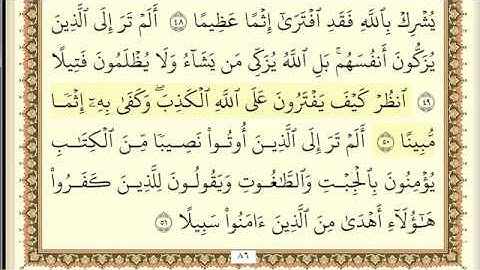 يُشْرِكْ بِٱللَّهِ فَقَدِ ٱفْتَرَىٰٓ إِثْمًا عَظِيمًا ٤٨ أَلَمْ تَرَ إِلَى ٱلَّذِينَ
يُزَكُّونَ أَنفُسَهُم ۚ بَلِ ٱللَّهُ يُزَكِّى مَن يَشَآءُ وَلَا يُظْلَمُونَ فَتِيلًا
٤٩ ٱنظُرْ كَيْفَ يَفْتَرُونَ عَلَى ٱللَّهِ ٱلْكَذِبَ ۖ وَكَفَىٰ بِهِۦٓ إِثْمًا
مُّبِينًا ٥٠ أَلَمْ تَرَ إِلَى ٱلَّذِينَ أُوتُوا۟ نَصِيبًا مِّنَ ٱلْكِتَـٰبِ
يُؤْمِنُونَ بِٱلْجِبْتِ وَٱلطَّـٰغُوتِ وَيَقُولُونَ لِلَّذِينَ كَفَرُوا۟
هَـٰٓؤُلَآءِ أَهْدَىٰ مِنَ ٱلَّذِينَ ءَامَنُوا۟ سَبِيلًا ٥١
٨٦